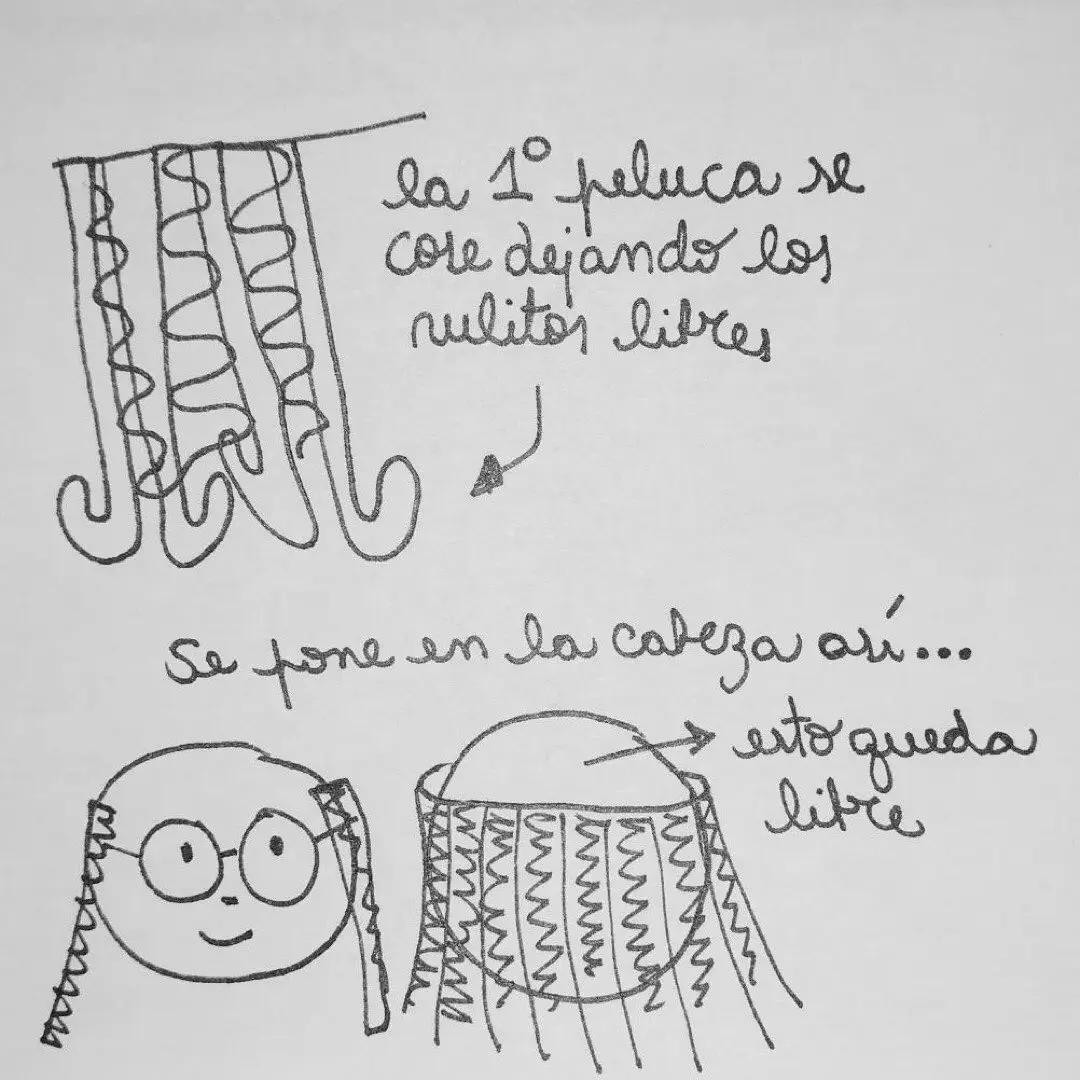 la 1º peluca se
cose dejando los
rulitos libres
Se pone en la cabeza así...
esto queda
libre